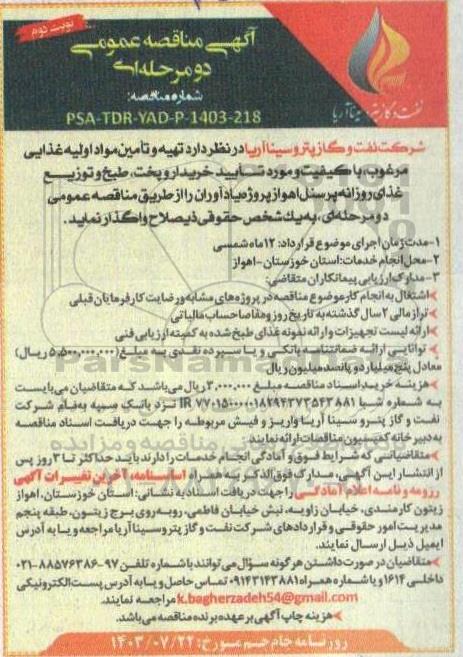 نوبت دوم
آگهی مناقصه عمومی
دو مرحله‌ای
شماره مناقصه:
PSA-TDR-YAD-P-1403-218
نفت و گاز پترو سینا آریا
شرکت نفت و گاز پترو سینا آریا در نظر دارد تهیه و تأمین مواد اولیه غذایی
مرغوب، با کیفیت و مورد تأیید خریدار و پخت، طبخ و توزیع
غذای روزانه پرسنل اهواز پروژه یادآوران را از طریق مناقصه عمومی
دو مرحله‌ای، به یک شخص حقوقی ذیصلاح واگذار نماید.
۱-مدت زمان اجرای موضوع قرارداد: ۱۲ ماه شمسی
۲-محل انجام خدمات: استان خوزستان -اهواز
۳-مدارک ارزیابی پیمانکاران متقاضی:
اشتغال به انجام کار موضوع مناقصه در پروژه‌های مشابه و رضایت کارفرمایان قبلی
تراز مالی ۲ سال گذشته به تاریخ روز و مفاصا حساب مالیاتی
ارائه لیست تجهیزات و ارائه نمونه غذای طبخ شده به کمیته ارزیابی فنی
توانایی ارائه ضمانتنامه بانکی و یا سپرده نقدی به مبلغ (۵,۵۰۰,۰۰۰,۰۰۰ ریال)
معادل پنج میلیارد و پانصد میلیون ریال
هزینه خرید اسناد مناقصه مبلغ ۳,۰۰۰,۰۰۰ ریال می‌باشد که متقاضیان می‌بایست
به شماره شبا نزد بانک سپه به نام شرکت
نفت و گاز پترو سینا آریا واریز و فیش مربوطه را جهت دریافت اسناد مناقصه
به دبیرخانه کمیسیون مناقصات ارائه نمایند.
متقاضیانی که شرایط فوق و آمادگی انجام خدمات را دارند باید حداکثر تا ۳ روز پس
از انتشار این آگهی، مدارک فوق الذکر به همراه اساسنامه، آخرین تغییرات آگهی
رزومه و نامه اعلام آمادگی را جهت دریافت اسناد به نشانی: استان خوزستان، اهواز
زیتون کارمندی، خیابان زاویه، نبش خیابان فاطمی، روبه‌روی برج زیتون، طبقه پنجم
مدیریت امور حقوقی و قراردادهای شرکت نفت و گاز پترو سینا آریا مراجعه و یا به آدرس
ایمیل ذیل ارسال نمایند.
متقاضیان در صورت داشتن هرگونه سؤال می‌توانند با شماره تلفن ۹۷-۸۸۵۷۶۳۸۶-۰۲۱
داخلی ۱۶۱۴ و یا شماره همراه ۰۹۱۴۳۱۴۳۸۸۱ تماس حاصل و یا به آدرس پست الکترونیکی
k.bagherzadeh54@gmail.com مراجعه نمایند.
هزینه چاپ آگهی بر عهده برنده مناقصه می‌باشد.
روزنامه جام جم مورخ: ۱۴۰۳/۰۷/۲۲